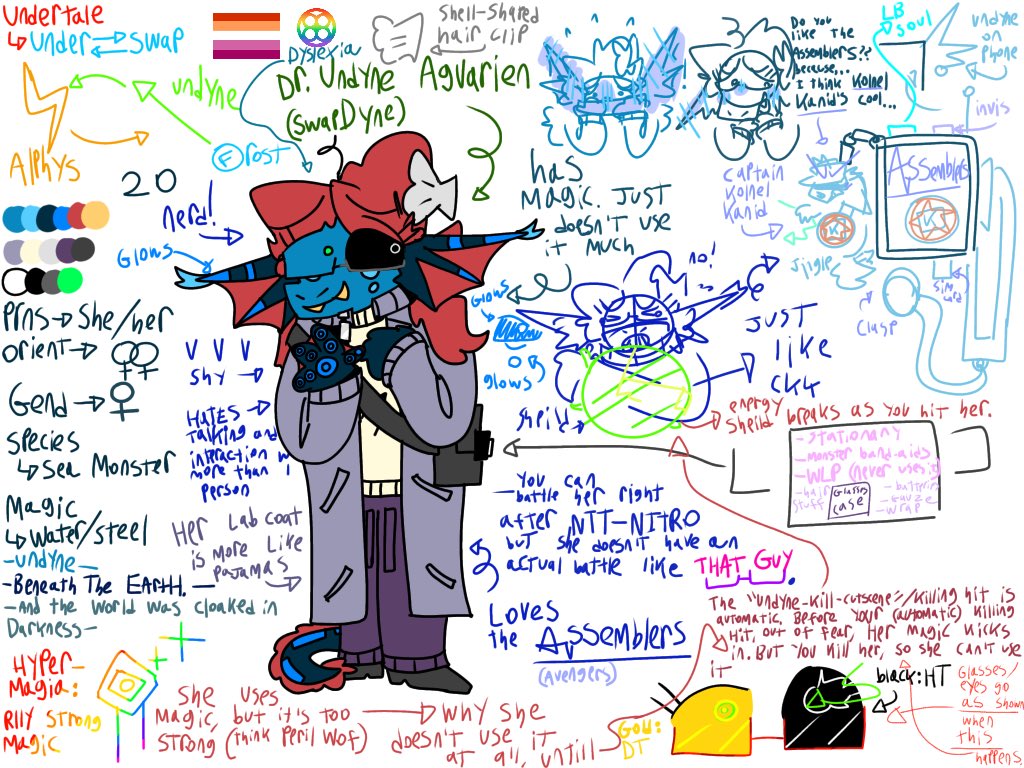 Undertale
Under swap
Alphys
undyne
Frost
Dyslexia
Dr. Undyne Aqvarien
(swapDyne)
shell-shared
hair clip
20
nerd!
Glows
Prns → She/her
Orient →
Gend →
Species
Sea Monster
Magic
Water/steel
-undyne-
-Beneath The EARTH.-
-And the World was cloaked in
Darkness-
V V V
shy →
HATES
Talking and
interaction w
more than 1
person
Her Lab coat
is more like
pajamas
HYPER-
Magia:
Rlly Strong
Magic
She uses
Magic, but it's too
strong (think Peril WoF)
Why She
doesn't use it
at all, untill
has
Magic. Just
doesn't use
it much
Glows
glows
no!
Sheild
energy
Sheild breaks as you hit her.
Just
like
Ck4
You can
battle her right
after NTT-NITRO
but she doesn't have an
actual battle like THAT GUY.
Loves
the Assemblers
(Avengers)
Do you
like the
Assemblers??
because...
I think Kolnel
Kanid's cool...
LB
soul
undyne
on
phone
invis
Captain
Kolnel
Kanid
K
Assemblers
K
Jiigle
Clasp
Sim
card
-Stationary
-monster band-aids
-WLP (never uses it)
-hair
stuff
Glasses
case
-batteries
-Gauze
-wrap
The "undyne-kill-cutscene"/killing hit is
automatic. Before your (automatic) killing
Hit, out of fear, Her magic kicks
in. But you kill her, so she can't use
it
Gold:
DT
black:HT
Glasses/
eyes go
as shown
when
this
happens.